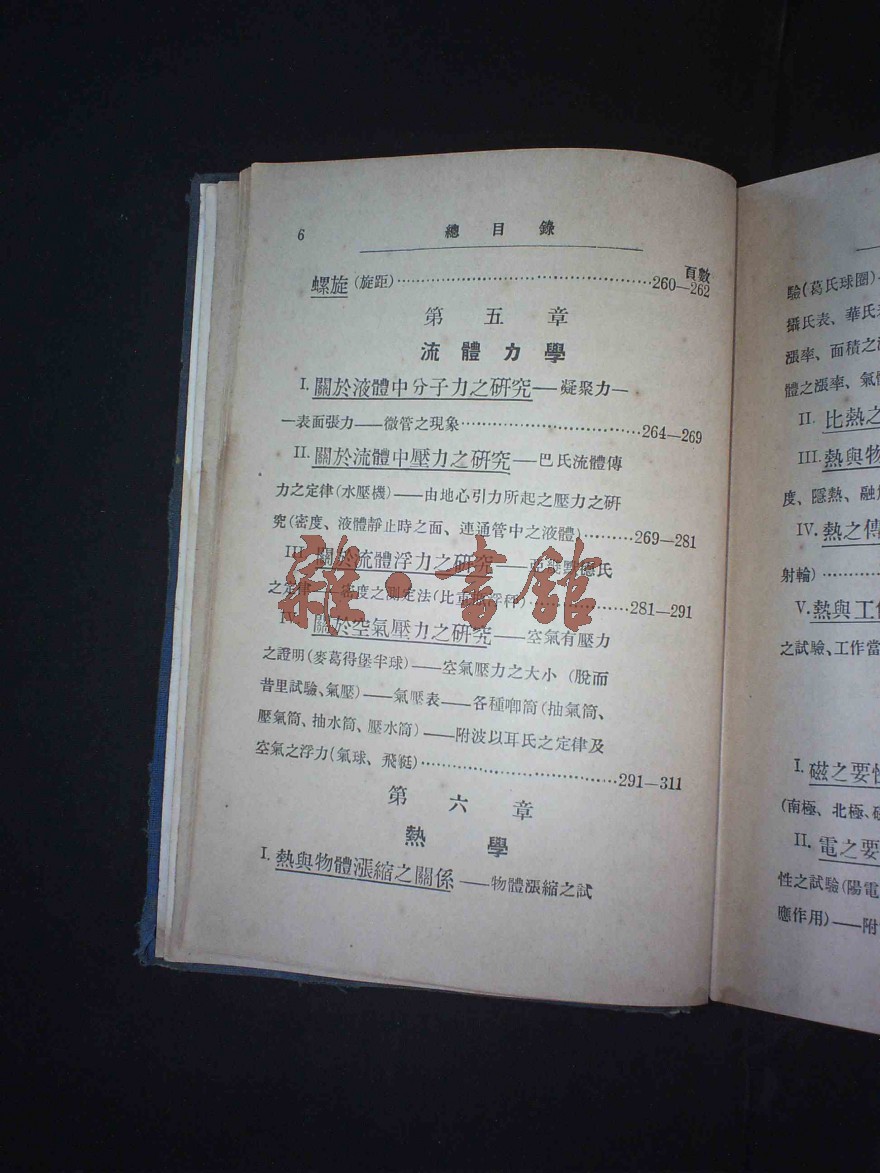 6
總目錄
頁數
螺旋(旋距)……260—262
第五章
流體力學
I. 關於液體中分子力之研究——凝聚力—
—表面張力——微管之現象……264—269
II. 關於流體中壓力之研究——巴氏流體傳
力之定律(水壓機)——由地心引力所起之壓力之研
究(密度、液體靜止時之面、連通管中之液體)……269—281
III. 關於流體浮力之研究——亞幾默德氏
之定律——密度之測定法(比重瓶浮秤)……281—291
IV. 關於空氣壓力之研究——空氣有壓力
之證明(麥葛得堡半球)——空氣壓力之大小(脫而
昔里試驗、氣壓)——氣壓表——各種唧筒(抽氣筒、
壓氣筒、抽水筒、壓水筒)——附波以耳氏之定律及
空氣之浮力(氣球、飛艇)……291—311
第六章
熱學
I. 熱與物體漲縮之關係——物體漲縮之試
雜·書館
驗(葛氏球圈)
攝氏表、華氏
漲率、面積之
體之漲率、氣
II. 比熱之
III. 熱與物
度、隱熱、融
IV. 熱之傳
射輪)……
V. 熱與工
之試驗、工作當
I. 磁之要性
(南極、北極、
II. 電之要
性之試驗(陽電
應作用)——附